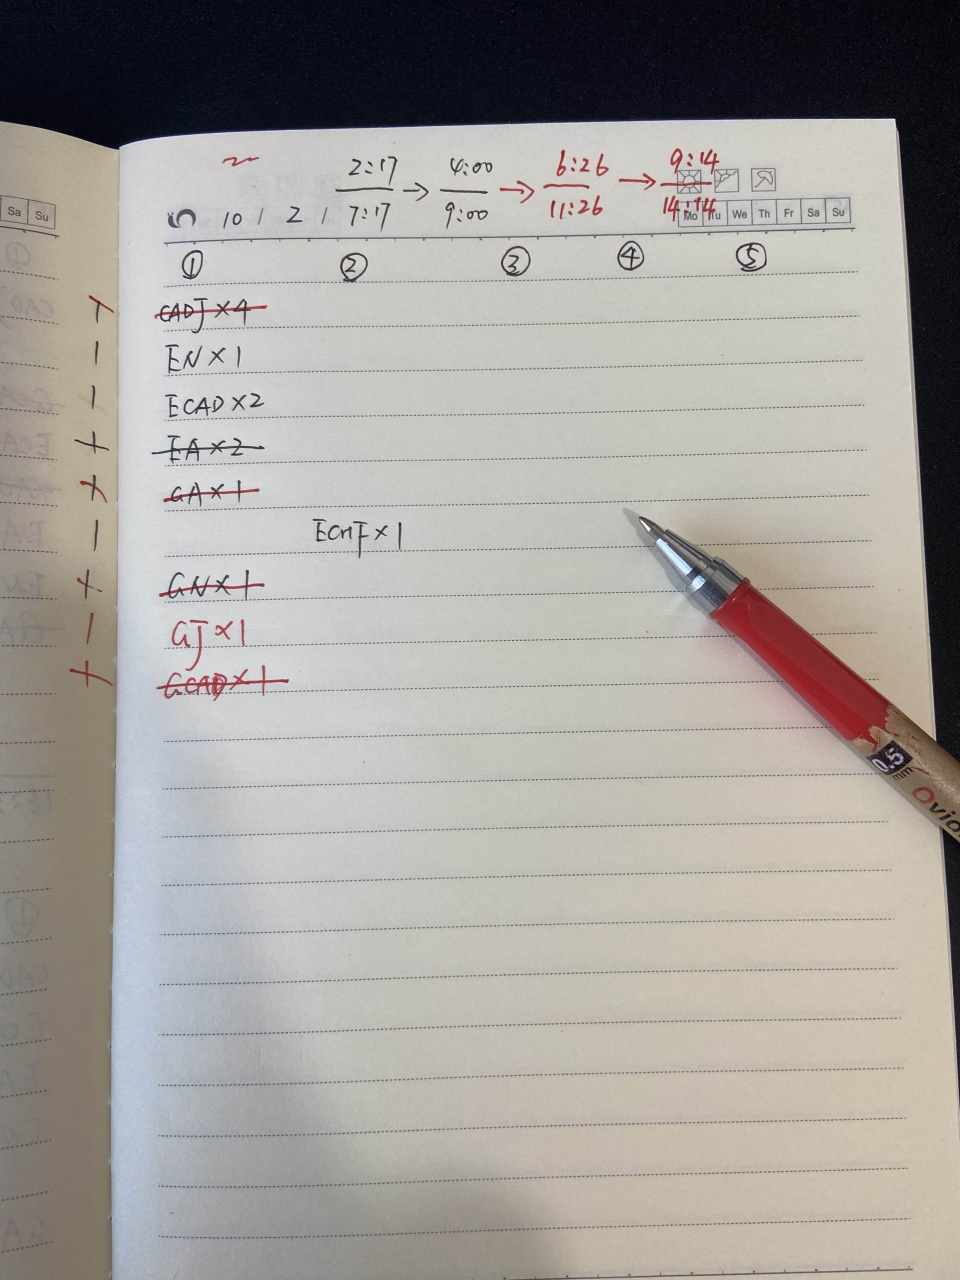 2:17 → 4:00 → 6:26 → 9:14
7:17 9:00 11:26 14:14
5 10 1 2 1
Mo Tu We Th Fr Sa Su
Sa Su
① ② ③ ④ ⑤
CADJ×4
EN×1
ECAD×2
EA×2
GA×1
GN×1
GJ×1
GCAD×1
0.5
mm